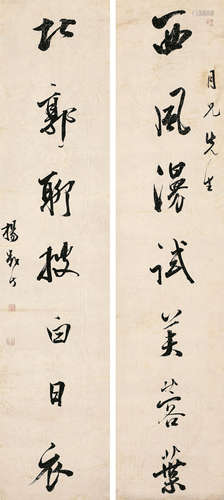 月兄先生
西風漫試芙蓉葉
北郭聊白日衣
楊